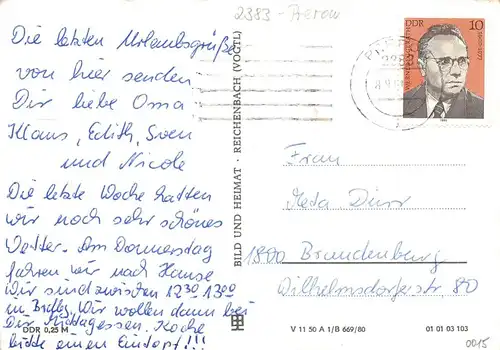 2383 - Prerow
Die letzten Urlaubsgrüße
von hier senden
Dir liebe Oma
Klaus, Edith, Sven
und Nicole
Die letzte Woche hatten
wir noch sehr schönes
Wetter. Am Donnerstag
fahren wir nach Hause
Wir sind zwischen 12³⁰ 13⁰⁰
in Brdbg. Wir wollen dann bei
Dir Mittagessen. Koche
bitte einen Eintopf!!!
DDR 0,25 M
BILD UND HEIMAT · REICHENBACH (VOGTL)
DDR 10
Frau
Meta Durr
1800 Brandenburg
Wilhelmsdorferstr 80
V 11 50 A 1/B 669/80
01 01 03 103
0015